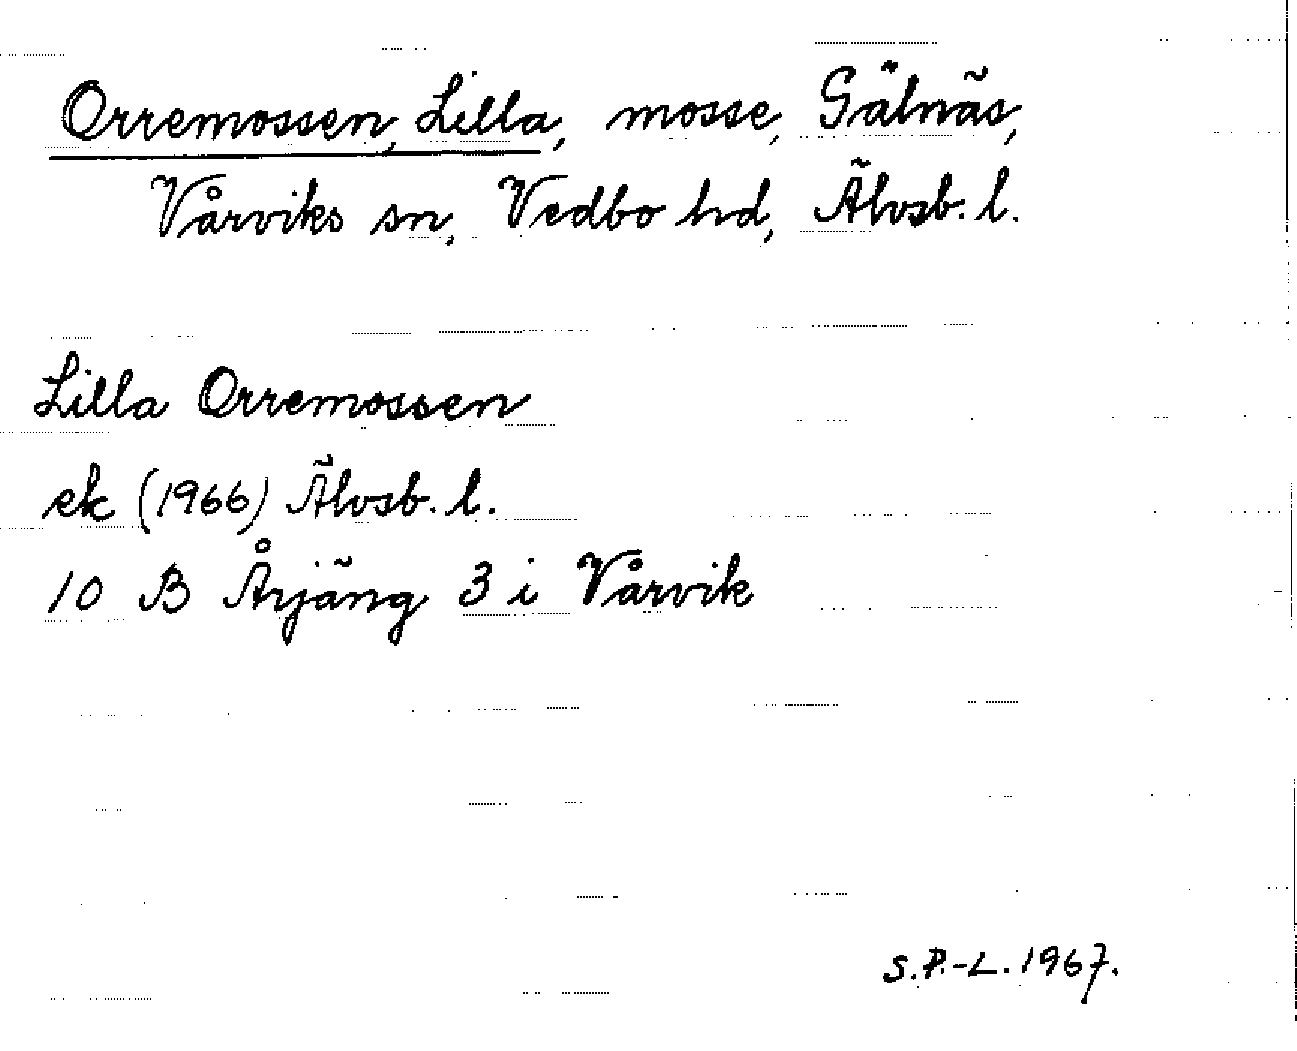 Orremossen, Lilla, mosse, Gälnäs,
Vårviks sn, Vedbo hd, Älvsb. l.
Lilla Orremossen
ek (1966) Älvsb. l.
10 B Årjäng 3 i Vårvik
S.P.-L. 1967.